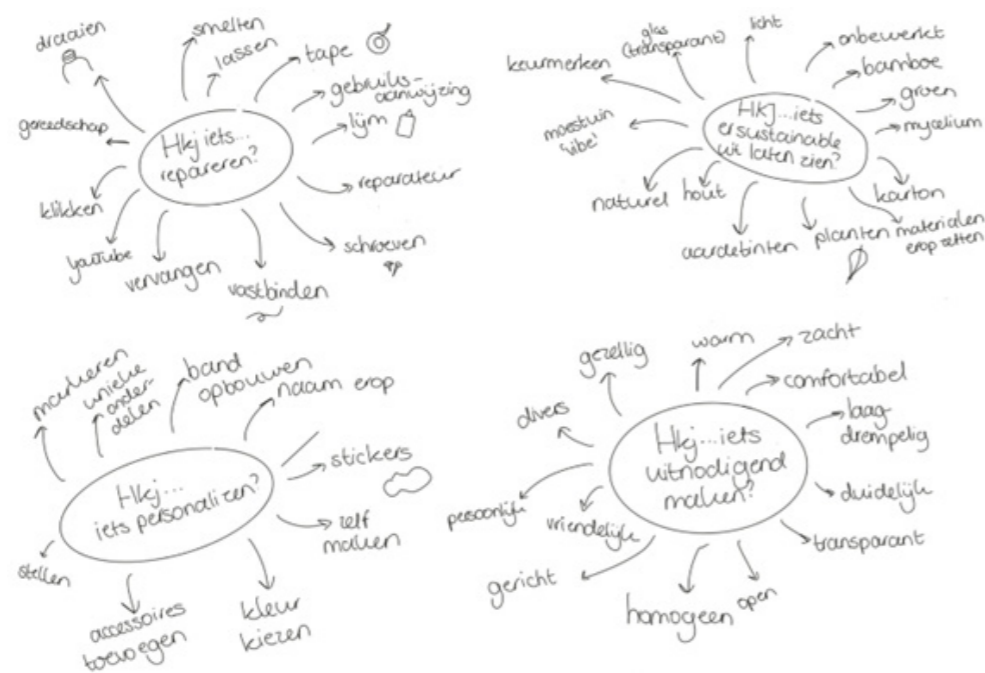 draaien
smelten
lassen
tape
gebruiks-
aanwijzing
lijm
reparateur
schroeven
vastbinden
vervangen
youtube
klikken
gereedschap
Hkj iets...
repareren?
keurmerken
glas
(transparant)
licht
onbewerkt
bamboe
groen
mycelium
karton
materialen
erop zetten
planten
aardetinten
hout
naturel
moestuin
'vibe'
Hkj...iets
er sustainable
uit laten zien?
markeren
unieke
onder-
delen
band
opbouwen
naam erop
stickers
zelf
maken
kleur
kiezen
accessoires
toevoegen
stellen
Hkj...
iets personalizen?
gezellig
warm
zacht
comfortabel
laag-
drempelig
duidelijk
transparant
open
homogeen
gericht
vriendelijk
persoonlijk
divers
Hkj...iets
uitnodigend
maken?